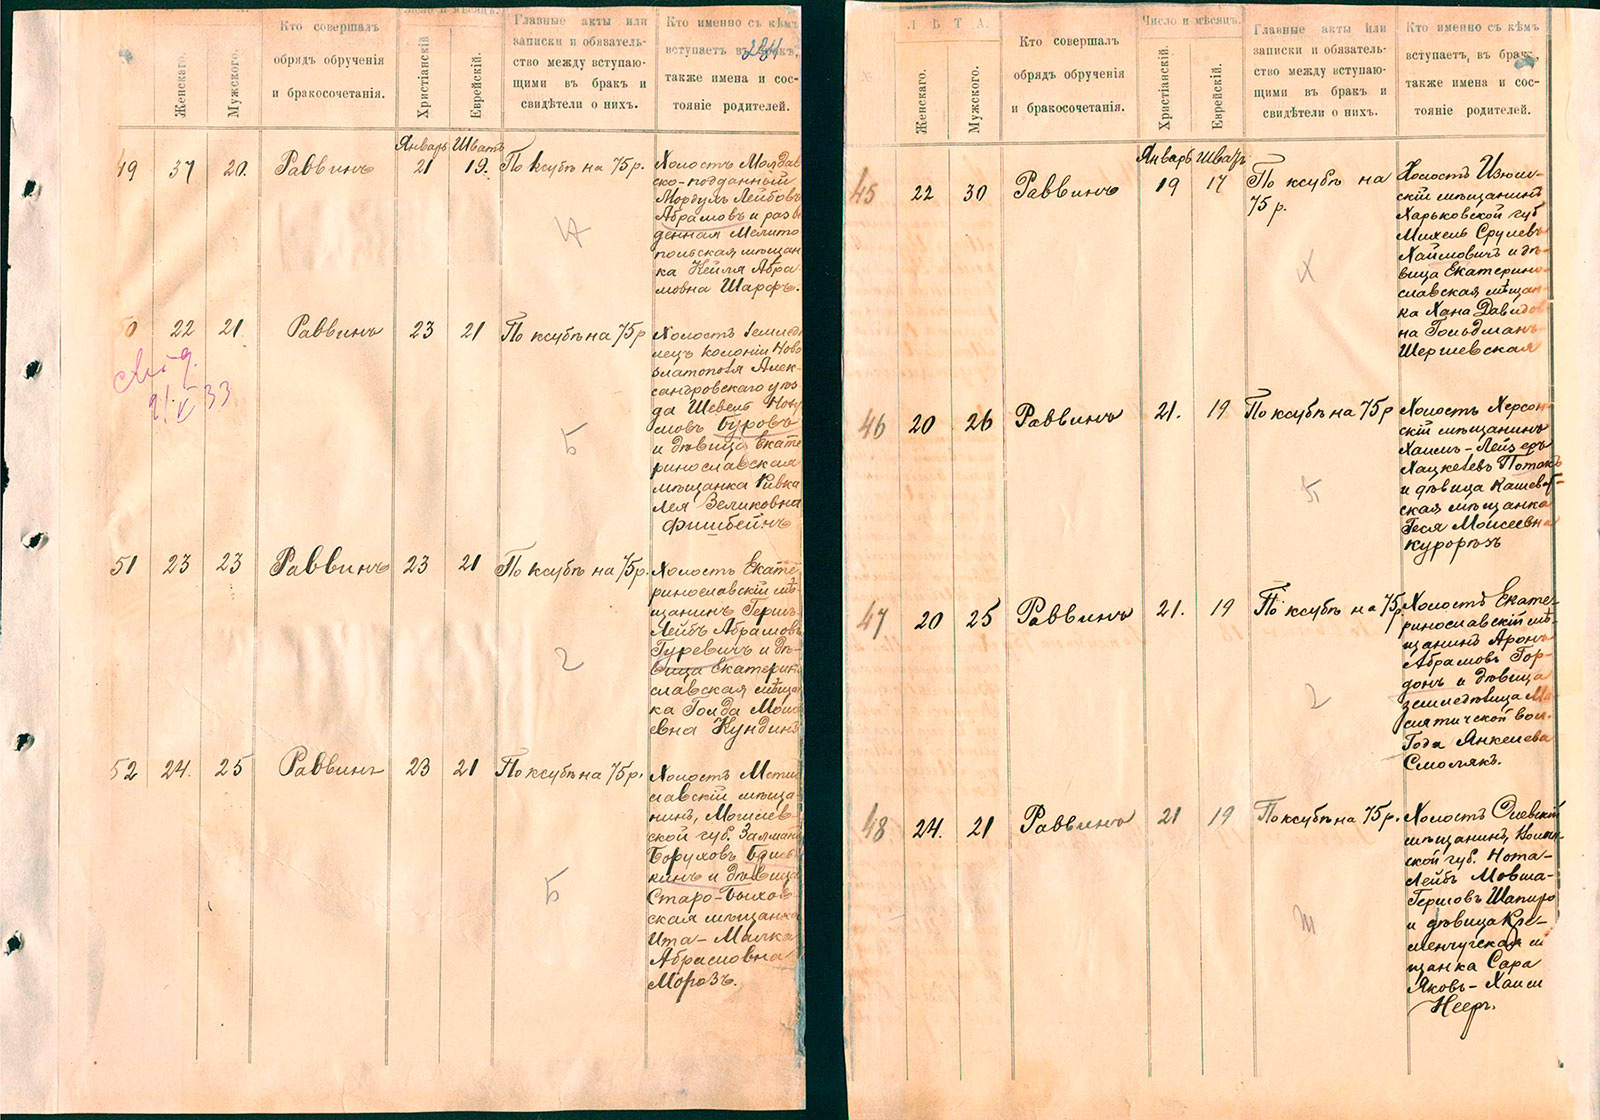 Женскаго.
Мужского.
Кто совершалъ
обрядъ обрученія
и бракосочетанія.
Число и мѣсяцъ.
Христіанскій
Еврейскій.
Главные акты или
записки и обязатель-
ство между вступаю-
щими въ бракъ и
свидѣтели о нихъ.
Кто именно съ кѣмъ
вступаетъ въ бракъ,
также имена и сос-
тояніе родителей.
284
Январь Шватъ
49 37 20. Раввинъ 21 19. По ксубѣ на 75 р.
Холостъ Молдав
ско-подданный
Мордухъ Лейбовъ
Абрамовъ и разве
денная Мелито
польская мѣщан
ка Кейля Абра-
мовна Шарфъ.
50 22 21. Раввинъ 23 21 По ксубѣ на 75 р
Холостъ землед
лецъ колоніи Ново
златополя Алек-
сандровскаго уѣз
да Шевель
мовъ Буровъ
и дѣвица Екате
ринославская
мѣщанка Ривка
Лея Зеликовна
Фишбейнъ
21. V 33
51 23 23 Раввинъ 23 21 По ксубѣ на 75 р.
Холостъ Екате
ринославскій мѣ
щанинъ Гершъ
Лейбъ Абрамовъ
Гуревичъ и дѣ-
вица Екатерин
славская мѣщан
ка Голда Мои
евна Кундинъ
52 24. 25 Раввинъ 23 21 По ксубѣ на 75 р.
Холостъ Мсти
славскій мѣща
нинъ, Могилев-
ской губ. Залманъ
Боруховъ
кинъ и дѣвица
Старо-Быхов
ская мѣщанка
Ита-Малка
Абрамовна
Морозъ.
ЛѢТА.
Женскаго.
Мужского.
Кто совершалъ
обрядъ обрученія
и бракосочетанія.
Число и мѣсяцъ.
Христіанскій
Еврейскій.
Главные акты или
записки и обязатель-
ство между вступаю-
щими въ бракъ и
свидѣтели о нихъ.
Кто именно съ кѣмъ
вступаетъ, въ бракъ,
также имена и сос-
тояніе родителей.
Январь Шватъ
45 22 30 Раввинъ 19 17 По ксубѣ на
75 р.
Холостъ Изюм-
скій мѣщанинъ
Харьковской губ
Михель Срулевъ
Хаимовичъ и дѣ-
вица Екатерино-
славская мѣщан-
ка Хана Давидов
на Гольдманъ-
Шершевская
46 20 26 Раввинъ 21. 19 По ксубѣ на 75 р
Холостъ Херсон-
скій мѣщанинъ
Хаимъ-Лейзеръ
Хацкелевъ Потокъ
и дѣвица Кашеват-
ская мѣщанка
Геся Моисеевна
47 20 25 Раввинъ 21. 19 По ксубѣ на 75 р.
Холостъ Екате-
ринославскій мѣ-
щанинъ Аронъ
Абрамовъ Гор-
донъ и дѣвица
земледѣлица
вол.
Года Янкелева
Смолякъ.
48 24. 21 Раввинъ 21 19 По ксубѣ на 75 р.
Холостъ
мѣщанинъ,
ской губ. Нота-
Лейбъ Мовша-
Гершовъ Шапиро
и дѣвица Кре-
менчугская м
щанка Сара
Яковъ-Хаим
Нееръ.